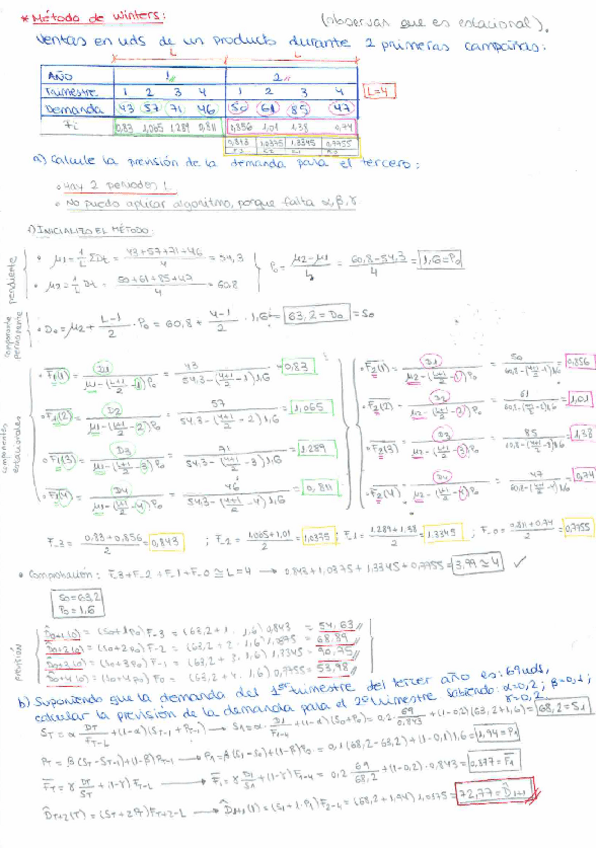 * Método de Winters: (observar que es estacional).
Ventas en uds de un producto durante 2 primeras campañas:
L L
AÑO 1 2
Trimestre 1 2 3 4 1 2 3 4 L=4
Demanda 43 57 71 46 50 61 85 47
Fi 0,83 1,065 1,289 0,811 0,856 1,01 1,38 0,74
0,843 1,0375 1,3345 0,7755
a) Calcule la previsión de la demanda para el tercero:
• Hay 2 periodos L
• No puedo aplicar algoritmo, porque falta α, β, γ
1) INICIALIZO EL MÉTODO:
componente pendiente
• μ1 = 1/L ΣDt = (43+57+71+46)/4 = 54,3
• μ2 = 1/L Dt = (50+61+85+47)/4 = 60,8
P0 = (μ2-μ1)/L = (60,8-54,3)/4 = 1,6 = P0
permanente
• D0 = μ2 + (L-1)/2 · P0 = 60,8 + (4-1)/2 · 1,6 = 63,2 = D0 = S0
componentes estacionales
• F1(1) = D1/(μ1-((L+1)/2-1)P0) = 43/(54,3-((4+1)/2-1)1,6) = 0,83
• F1(2) = D2/(μ1-((L+1)/2-2)P0) = 57/(54,3-((4+1)/2-2)1,6) = 1,065
• F1(3) = D3/(μ1-((L+1)/2-3)P0) = 71/(54,3-((4+1)/2-3)1,6) = 1,289
• F1(4) = D4/(μ1-((L+1)/2-4)P0) = 46/(54,3-((4+1)/2-4)1,6) = 0,811
• F2(1) = D1/(μ2-((L+1)/2-1)P0) = 50/(60,8-((4+1)/2-1)1,6) = 0,856
• F2(2) = D2/(μ2-((L+1)/2-2)P0) = 61/(60,8-((4+1)/2-2)1,6) = 1,01
• F2(3) = D3/(μ2-((L+1)/2-3)P0) = 85/(60,8-((4+1)/2-3)1,6) = 1,38
• F2(4) = D4/(μ2-((L+1)/2-4)P0) = 47/(60,8-((4+1)/2-4)1,6) = 0,74
F-3 = (0.83+0.856)/2 = 0,843 ; F-2 = (1.065+1,01)/2 = 1,0375 ; F-1 = (1.289+1,38)/2 = 1.3345 ; F-0 = (0.811+0.74)/2 = 0,7755
• Comprobación: F-3+F-2+F-1+F-0 ≅ L=4 → 0.843+1,0375+1,3345+0,7755 = 3,99 ≅ 4 ✓
S0=63,2
P0=1,6
PREVISIÓN
D̂0+1(0) = (S0+1P0)F-3 = (63,2+1·1,6)0,843 = 54,63
D̂0+2(0) = (S0+2P0)F-2 = (63,2+2·1,6)1,0375 = 68.89
D̂0+3(0) = (S0+3P0)F-1 = (63,2+3·1,6)1,3345 = 90,75
D̂0+4(0) = (S0+4P0)F0 = (63,2+4·1,6)0,7755 = 53,98
b) Suponiendo que la demanda del 1er trimestre del tercer año es: 69uds,
calcular la previsión de la demanda para el 2º trimestre sabiendo: α=0,2 ; β=0,1 ; γ=0,2.
ST = α DT/FT-L + (1-α)(ST-1+PT-1) → S1 = α · D1/F1-4 + (1-α)(S0+P0) = 0,2 · 69/0,843 + (1-0,2)(63,2+1,6) = 68,2 = S1
PT = β(ST-ST-1)+(1-β)PT-1 → P1 = β(S1-S0)+(1-β)P0 = 0,1(68,2-63,2)+(1-0,1)1,6 = 1,94 = P1
FT = γ DT/ST + (1-γ)FT-L → F1 = γ D1/S1 + (1-γ)F1-4 = 0,2 69/68,2 + (1-0,2)·0,843 = 0,877 = F1
D̂T+2(T) = (ST+2PT)FT+2-L → D̂1+1(1) = (S1+1·P1)F2-4 = (68,2+1,94)1,0375 = 72,77 = D̂1+1